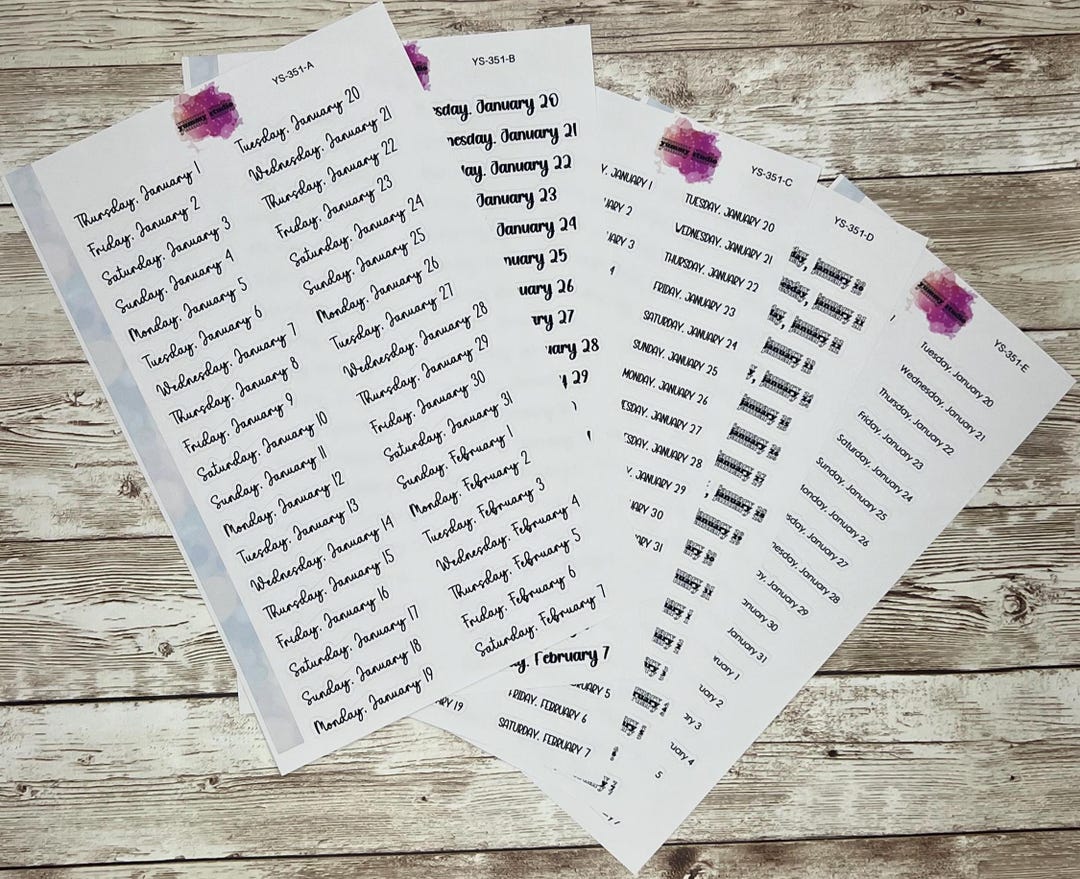 YS-351-A
yummy studio
Thursday, January 1
Friday, January 2
Saturday, January 3
Sunday, January 4
Monday, January 5
Tuesday, January 6
Wednesday, January 7
Thursday, January 8
Friday, January 9
Saturday, January 10
Sunday, January 11
Monday, January 12
Tuesday, January 13
Wednesday, January 14
Thursday, January 15
Friday, January 16
Saturday, January 17
Sunday, January 18
Monday, January 19
Tuesday, January 20
Wednesday, January 21
Thursday, January 22
Friday, January 23
Saturday, January 24
Sunday, January 25
Monday, January 26
Tuesday, January 27
Wednesday, January 28
Thursday, January 29
Friday, January 30
Saturday, January 31
Sunday, February 1
Monday, February 2
Tuesday, February 3
Wednesday, February 4
Thursday, February 5
Friday, February 6
Saturday, February 7
YS-351-B
sday, January 20
nesday, January 21
day, January 22
January 23
January 24
nuary 25
uary 26
ry 27
uary 28
29
y, February 7
yummy studio
YS-351-C
Y, JANUARY 1
UARY 2
ARY 3
4
ARY 19
TUESDAY, JANUARY 20
WEDNESDAY, JANUARY 21
THURSDAY, JANUARY 22
FRIDAY, JANUARY 23
SATURDAY, JANUARY 24
SUNDAY, JANUARY 25
MONDAY, JANUARY 26
ESDAY, JANUARY 27
SDAY, JANUARY 28
Y, JANUARY 29
ARY 30
ARY 31
ARY 5
FRIDAY, FEBRUARY 6
SATURDAY, FEBRUARY 7
YS-351-D
day, January 20
esday, January 21
day, January 22
January 23
January 24
January 25
January 26
January 27
January 28
January 29
yummy studio
YS-351-E
Tuesday, January 20
Wednesday, January 21
Thursday, January 22
Friday, January 23
Saturday, January 24
Sunday, January 25
Monday, January 26
sday, January 27
nesday, January 28
ay, January 29
anuary 30
January 31
ruary 1
uary 2
ry 3
uary 4
5